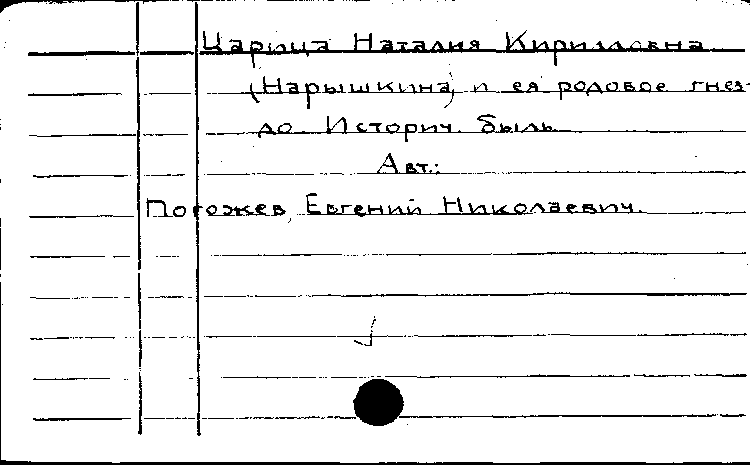 Царица Наталия Кирилловна
(Нарышкина) и ея родовое гнез-
до. Историч. быль.
Авт.:
Погожев, Евгений Николаевич.